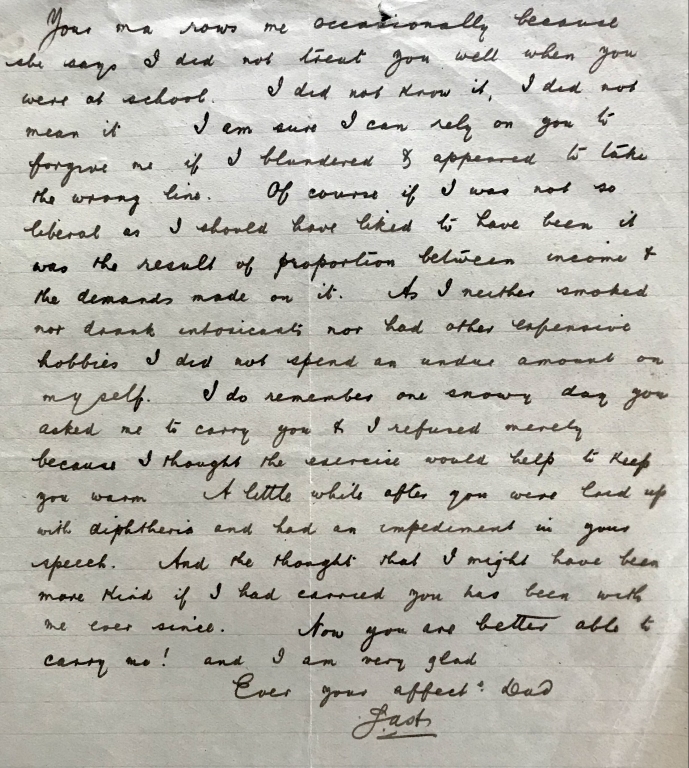 Your ma rows me occasionally because
she says I did not treat you well when you
were at school. I did not know it, I did not
mean it I am sure I can rely on you to
forgive me if I blundered & appeared to take
the wrong line. Of course if I was not so
liberal as I should have liked to have been it
was the result of proportion between income &
the demands made on it. As I neither smoked
nor drank intoxicants nor had other expensive
hobbies I did not spend an undue amount on
my self. I do remember one snowy day you
asked me to carry you & I refused merely
because I thought the exercise would help to keep
you warm A little while after you were laid up
with diphtheria and had an impediment in your
speech. And the thought that I might have been
more kind if I had carried you has been with
me ever since. Now you are better able to
carry me! and I am very glad
Ever your affect. Dad